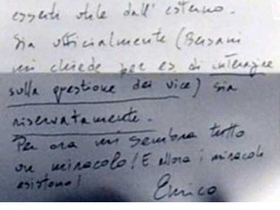 esserti utile dall'esterno.
Sia ufficialmente (Bersani
mi chiede per es. di interagire
sulla questione dei vice) sia
riservatamente.
Per ora mi sembra tutto
un miracolo! E allora i miracoli
esistono!
Enrico